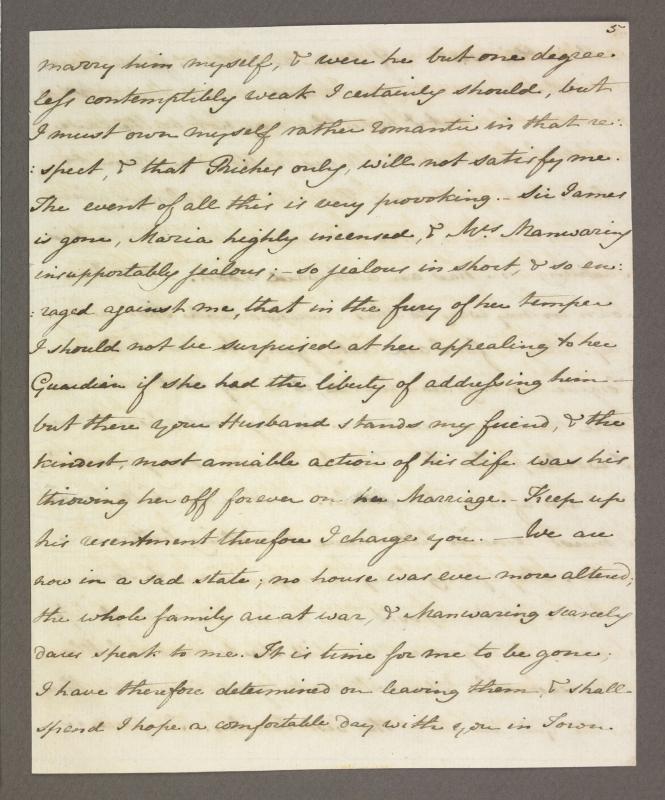 5
marry him myself, & were he but one degree
less contemptibly weak I certainly should, but
I must own myself rather romantic in that re:
:spect, & that Riches only, will not satisfy me.
The event of all this is very provoking. – Sir James
is gone, Maria highly incensed, & Mrs. Manwaring
insupportably jealous; – so jealous in short, & so en:
:raged against me, that in the fury of her temper
I should not be surprised at her appealing to her
Guardian if she had the liberty of addressing him –
but there your Husband stands my friend, & the
kindest, most amiable action of his Life was his
throwing her off forever on her Marriage. – Keep up
his resentment therefore I charge you. – We are
now in a sad state; no house was ever more altered;
the whole family are at war, & Manwaring scarcely
dares speak to me. It is time for me to be gone;
I have therefore determined on leaving them, & shall
spend I hope a comfortable day with you in Town.